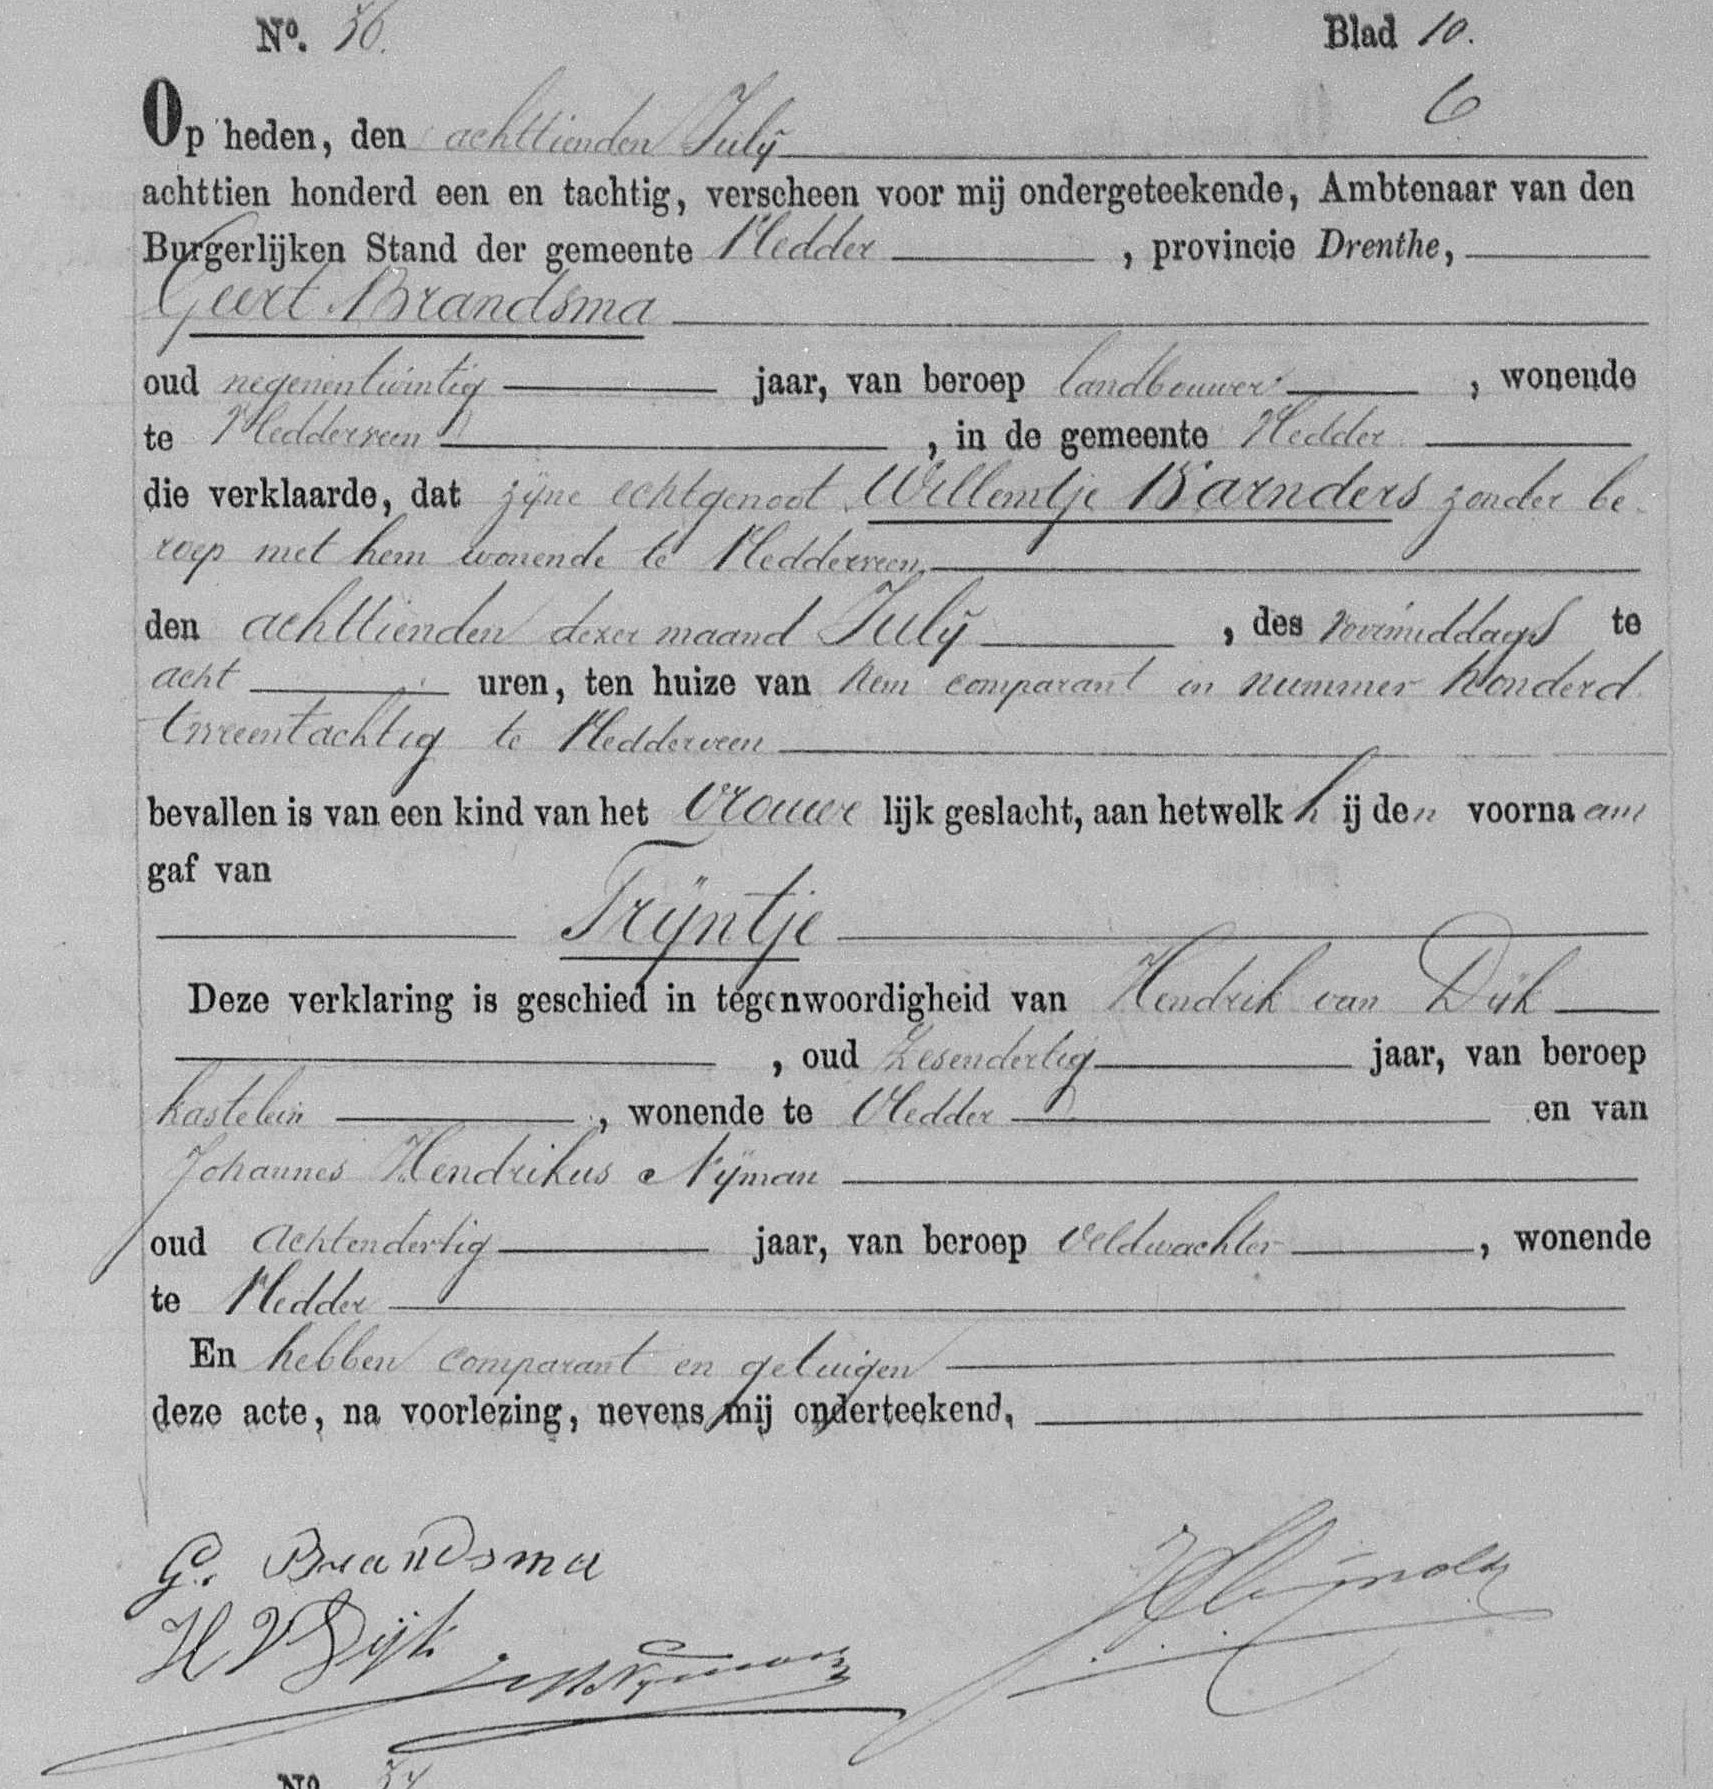 No. 36. Blad 10.
6
Op heden, den achttienden July
achttien honderd een en tachtig, verscheen voor mij ondergeteekende, Ambtenaar van den
Burgerlijken Stand der gemeente Vledder, provincie Drenthe,
Geert Brandsma
oud negenentwintig jaar, van beroep landbouwer, wonende
te Vledderveen, in de gemeente Vledder
die verklaarde, dat zijne echtgenoot Willemtje Barnders zonder be-
roep met hem wonende te Vledderveen
den achttienden dezer maand July, des voormiddags te
acht uren, ten huize van hem comparant in nummer honderd
tweeentachtig te Vledderveen
bevallen is van een kind van het vrouwelijk geslacht, aan hetwelk hij den voornaam
gaf van
Trijntje
Deze verklaring is geschied in tegenwoordigheid van Hendrik van Dijk
, oud zesendertig jaar, van beroep
kastelein, wonende te Vledder en van
Johannes Hendrikus Nijman
oud achtendertig jaar, van beroep veldwachter, wonende
te Vledder
En hebben comparant en getuigen
deze acte, na voorlezing, nevens mij onderteekend,
G. Brandsma
H V Dijk
JH Nijman
No. 37